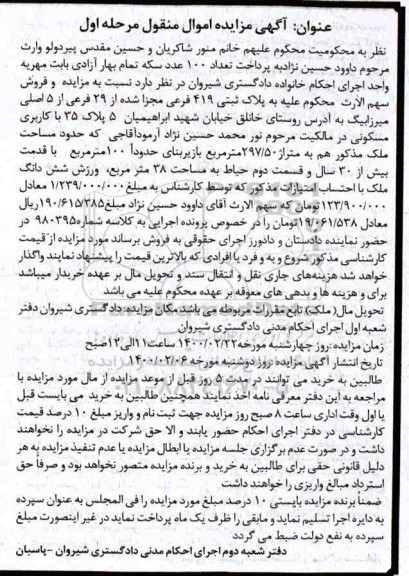 عنوان: آگهی مزایده اموال منقول مرحله اول
نظر به محکومیت محکوم علیهم خانم منور شاکریان و حسین مقدس پیردولو وارث
مرحوم داوود حسین نژادبه پرداخت تعداد ۱۰۰ عدد سکه تمام بهار آزادی بابت مهریه
واحد اجرای احکام خانواده دادگستری شیروان در نظر دارد نسبت به مزایده و فروش
سهم الارث محکوم علیه به پلاک ثبتی ۴۱۹ فرعی مجزا شده از ۲۹ فرعی از ۵ اصلی
میرزابیگ به آدرس روستای خانلق خیابان شهید ابراهیمیان ۵ پلاک ۳۵ با کاربری
مسکونی در مالکیت مرحوم نور محمد حسین نژاد آرمودآقاجی که حدود مساحت
ملک مذکور هم به متراژ۲۹۷/۵۰مترمربع بازیربنای حدوداً ۱۰۰مترمربع با قدمت
بیش از ۳۰ سال و قسمت دوم حیاط به مساحت ۳۸ متر مربع، ورزش شش دانگ
ملک با احتساب امتیازات مذکور که توسط کارشناس به مبلغ ۱/۲۳۹/۰۰۰/۰۰۰ معادل
۱۲۳/۹۰۰/۰۰۰تومان که سهم الارث آقای داوود حسین نژاد مبلغ۱۹۰/۶۱۵/۳۸۵ریال
معادل ۱۹/۰۶۱/۵۳۸تومان را در خصوص پرونده اجرایی به کلاسه شماره۹۸۰۳۹۵ در
حضور نماینده دادستان و دادورز اجرای حقوقی به فروش برساند مورد مزایده از قیمت
کارشناسی مذکور شروع و به و فرد یا افرادی که بالاترین قیمت را پیشنهاد نمایند واگذار
خواهد شد هزینه‌های جاری نقل و انتقال سند و تحویل مال بر عهده خریدار میباشد
برای و هزینه ها و بدهی های معوقه بر عهده محکوم علیه می باشد
تحویل مال( ملک) تابع مقررات مربوطه می باشد مکان مزایده: دادگستری شیروان دفتر
شعبه اول اجرای احکام مدنی دادگستری شیروان
زمان مزایده :روز چهارشنبه مورخه۱۴۰۰/۰۲/۲۲ ساعت۱۱الی۱۲صبح
تاریخ انتشار آگهی مزایده :روز دوشنبه مورخه ۱۴۰۰/۰۲/۰۶
طالبین به خرید می توانند در مدت ۵ روز قبل از موعد مزایده از مال مورد مزایده با
مراجعه به این دفتر معرفی نامه اخذ نمایند همچنین طالبین به خرید می بایست قبل
یا اول وقت اداری ساعت ۸ صبح روز مزایده جهت ثبت نام و واریز مبلغ ۱۰ درصد قیمت
کارشناسی در دفتر اجرای احکام حضور یابند و الا حق شرکت در مزایده را نخواهند
داشت و در صورت عدم برگزاری جلسه مزایده یا ابطال مزایده یا عدم تنفیذ مزایده به هر
دلیل قانونی حقی برای طالبین به خرید و برنده مزایده متصور نخواهد بود و صرفا حق
استرداد مبالغ واریزی را خواهند داشت
ضمناً برنده مزایده بایستی ۱۰ درصد مبلغ مورد مزایده را فی المجلس به عنوان سپرده
به دایره اجرا تسلیم نماید و مابقی را ظرف یک ماه پرداخت نماید در غیر اینصورت مبلغ
سپرده به نفع دولت ضبط می گردد
دفتر شعبه دوم اجرای احکام مدنی دادگستری شیروان -پاسبان